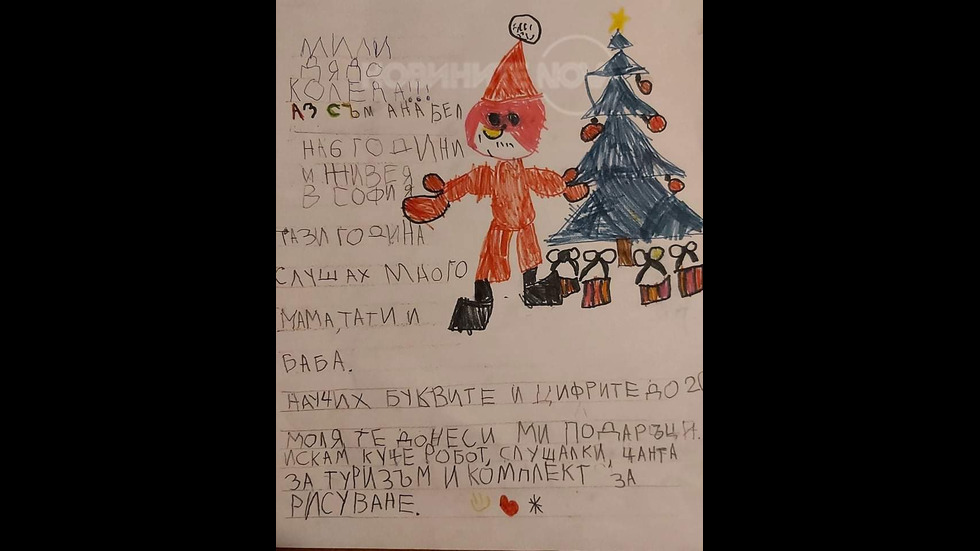 МИЛИ
ДЯДО
КОЛЕДА!!!
АЗ СЪМ АНАБЕЛ
НА 6 ГОДИНИ
И ЖИВЕЯ
В СОФИЯ
ТАЗИ ГОДИНА
СЛУШАХ МНОГО
МАМА, ТАТИ И
БАБА.
НАУЧИХ БУКВИТЕ И ЦИФРИТЕ ДО 20
МОЛЯ ТЕ ДОНЕСИ МИ ПОДАРЪЦИ.
ИСКАМ КУЧЕ РОБОТ, СЛУШАЛКИ, ЧАНТА
ЗА ТУРИЗЪМ И КОМПЛЕКТ ЗА
РИСУВАНЕ.
НОВИНИТЕ NOVA